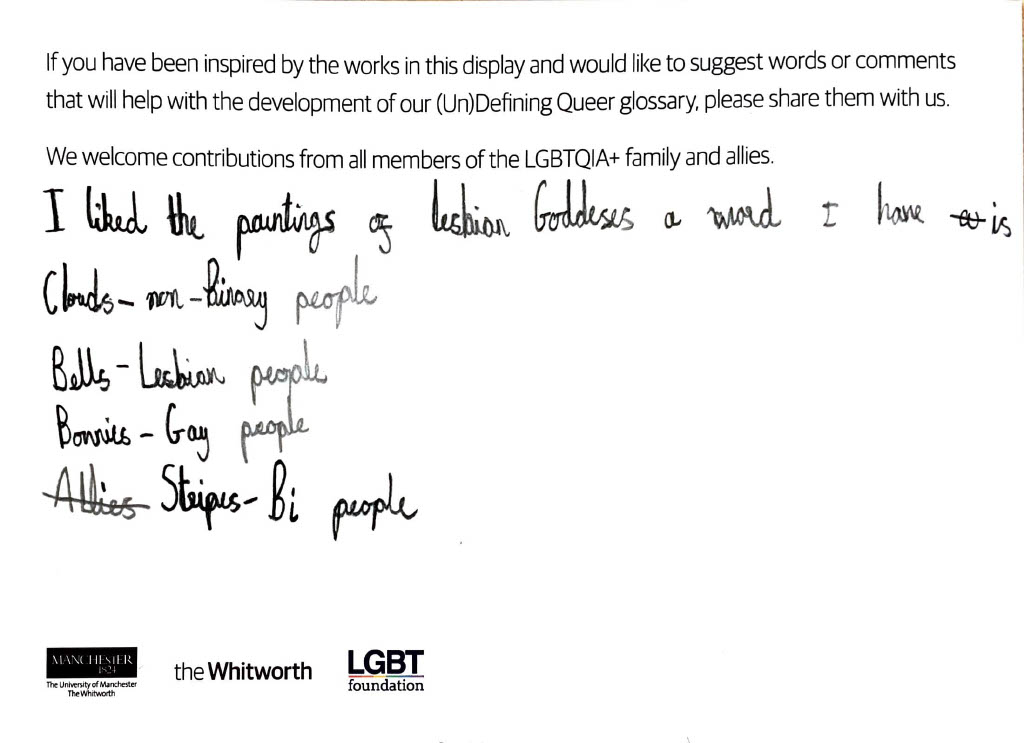 If you have been inspired by the works in this display and would like to suggest words or comments
that will help with the development of our (Un)Defining Queer glossary, please share them with us.
We welcome contributions from all members of the LGBTQIA+ family and allies.
I liked the paintings of lesbian Goddeses a word I have is
Clouds – non-Binary people
Bells – Lesbian people
Bonnies – Gay people
Allies Stripes – Bi people
MANCHESTER
1824
The University of Manchester
The Whitworth
the Whitworth
LGBT
foundation